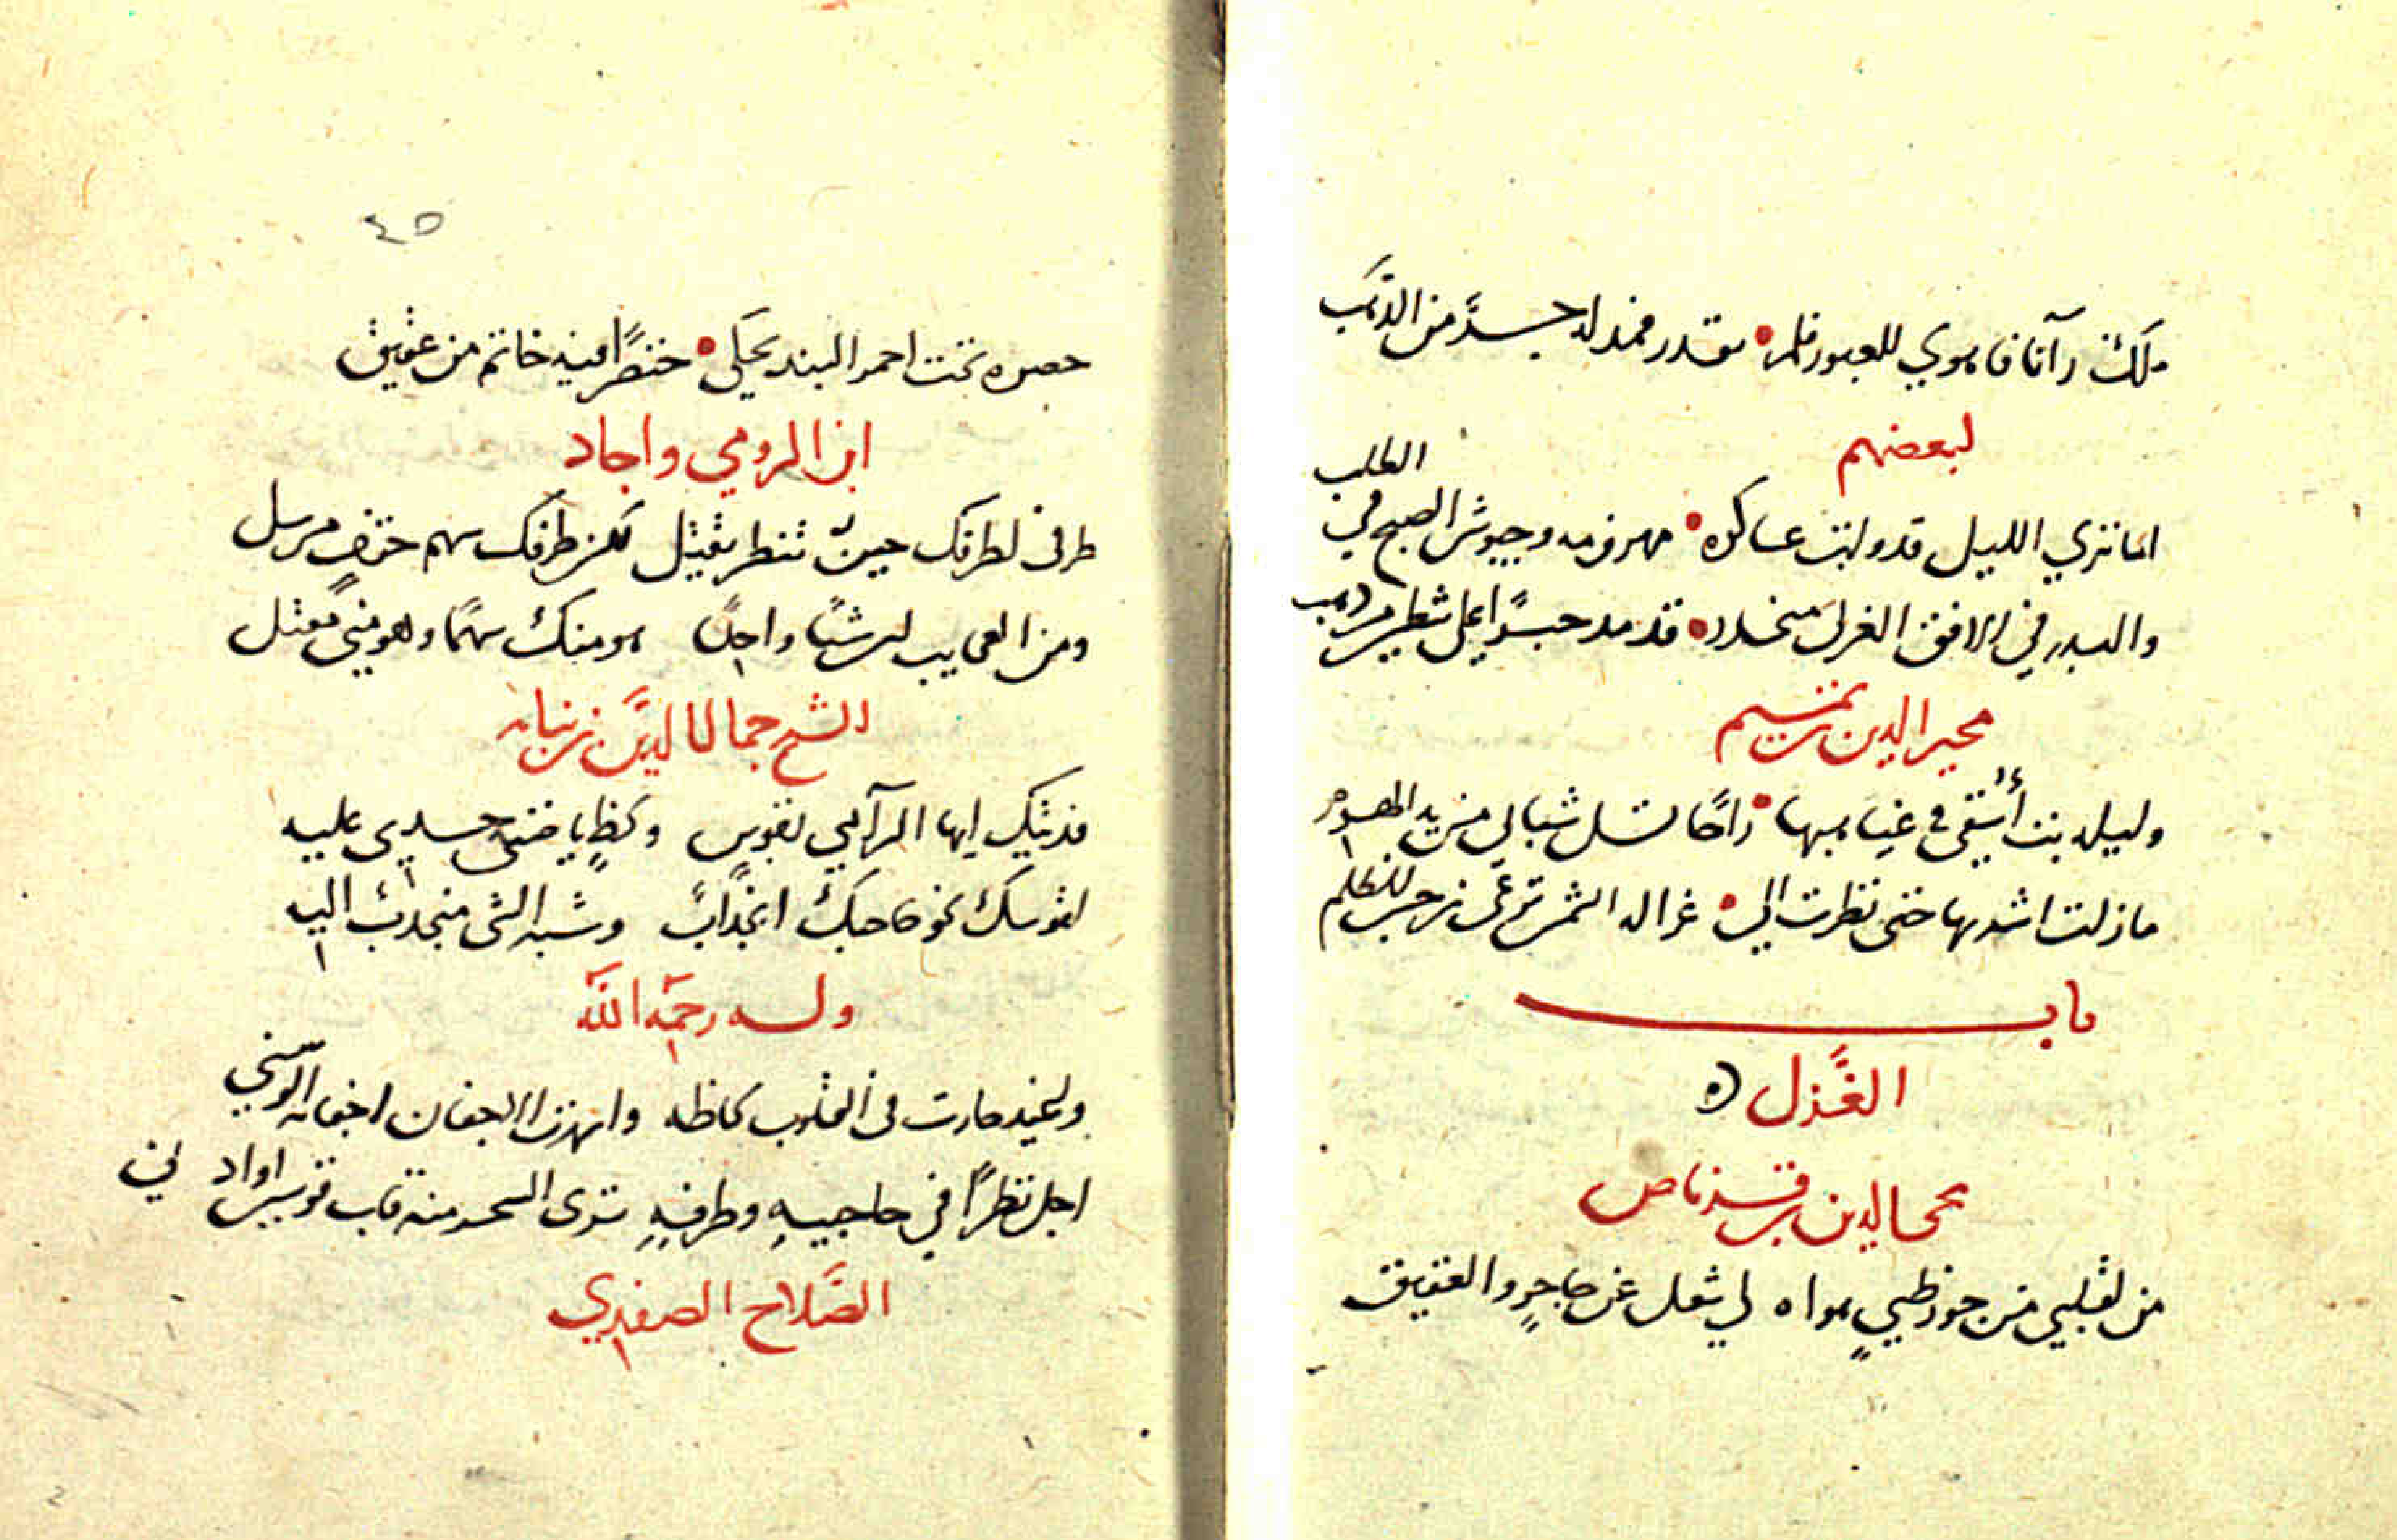 ملك رآنا فاهوي للعبور فلم يقدر فمد له جسرًا من الذهب
لبعضهم
اما تري الليل قد ولت عساكره مهزومه وجيوش الصبح في الطلب
والبدر في الافق الغربي قد مد جسرًا علي الشط من ذهب
مجير الدين بن تميم
وليله بت أسقى في غياهبها راحًا تسل شبابي من يد الهرم
ما زلت اشربها حتى نظرت الي غزاله الشمس ترعى نرجس الظلم
باب
الغَزل
محيي الدين بن قرناص
من لقلبي من جور ظبيٍ هواه لي شغل عن حاجرٍ والعقيق
خصره تحت احمر البند يحكي خنصرًا فيه خاتم من عقيق
ابن الرومي واجاد
طرفي لطرفك حين تنظر يقتل لكن طرفك سهم حتفٍ مرسل
ومن العجايب ان شيًا واحدًا هو منك سهمًا وهو مني مقتل
الشيخ جمال الدين بن نباته
فديتك ايها الرامي بقوسٍ ولحظٍ يا ضنى جسدي عليه
لقوسك نحو حاجبك انجذابٌ وشبه الشي منجذب اليه
وله رحمه الله
اجل نظرًا في حاجبيهِ وطرفهِ تري السحر منه قاب قوسين او ادني
الصَّلاح الصفدي
٤٥